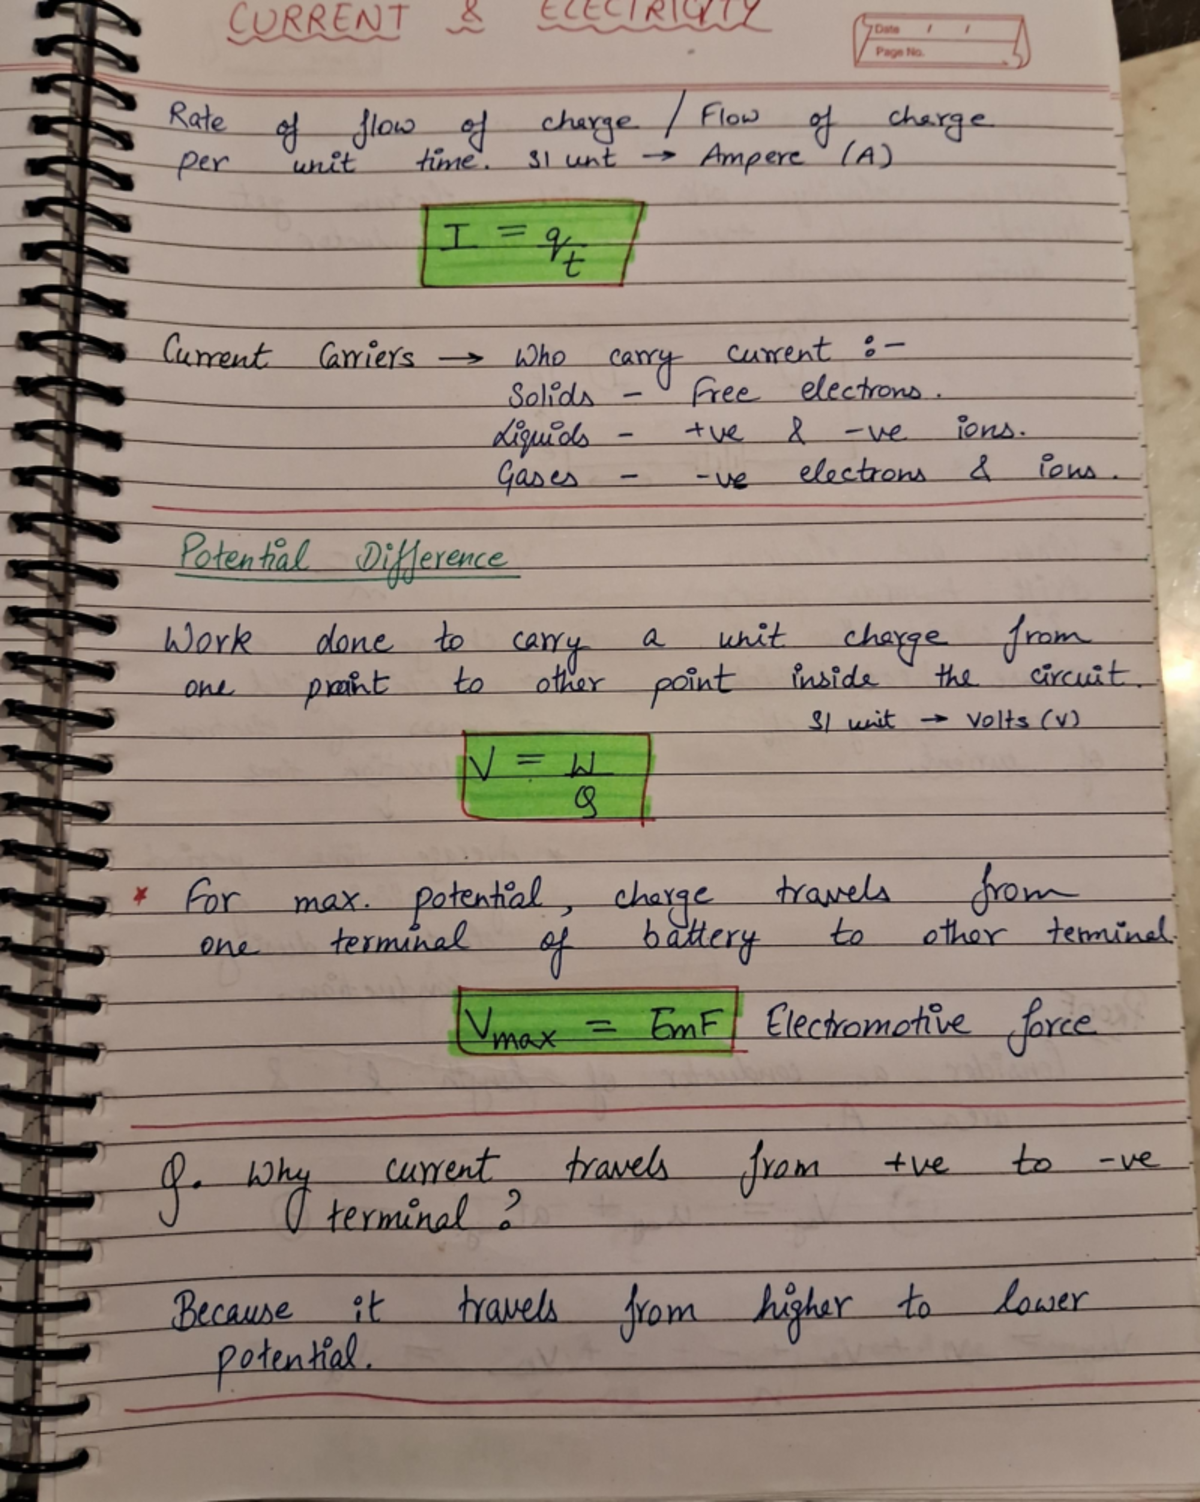 CURRENT & ELECTRICITY
Date / /
Page No.
Rate of flow of charge / Flow of charge
per unit time. SI unt → Ampere (A)
I = q/t
Current Carriers → Who carry current :-
Solids - Free electrons.
Liquids - +ve & -ve ions.
Gases - -ve electrons & ions.
Potential Difference
Work done to carry a unit charge from
one point to other point inside the circuit.
SI unit → Volts (V)
V = W
Q
* For max. potential, charge travels from
one terminal of battery to other terminal.
Vmax = EmF Electromotive force
Q. Why current travels from +ve to -ve
terminal ?
Because it travels from higher to lower
potential.